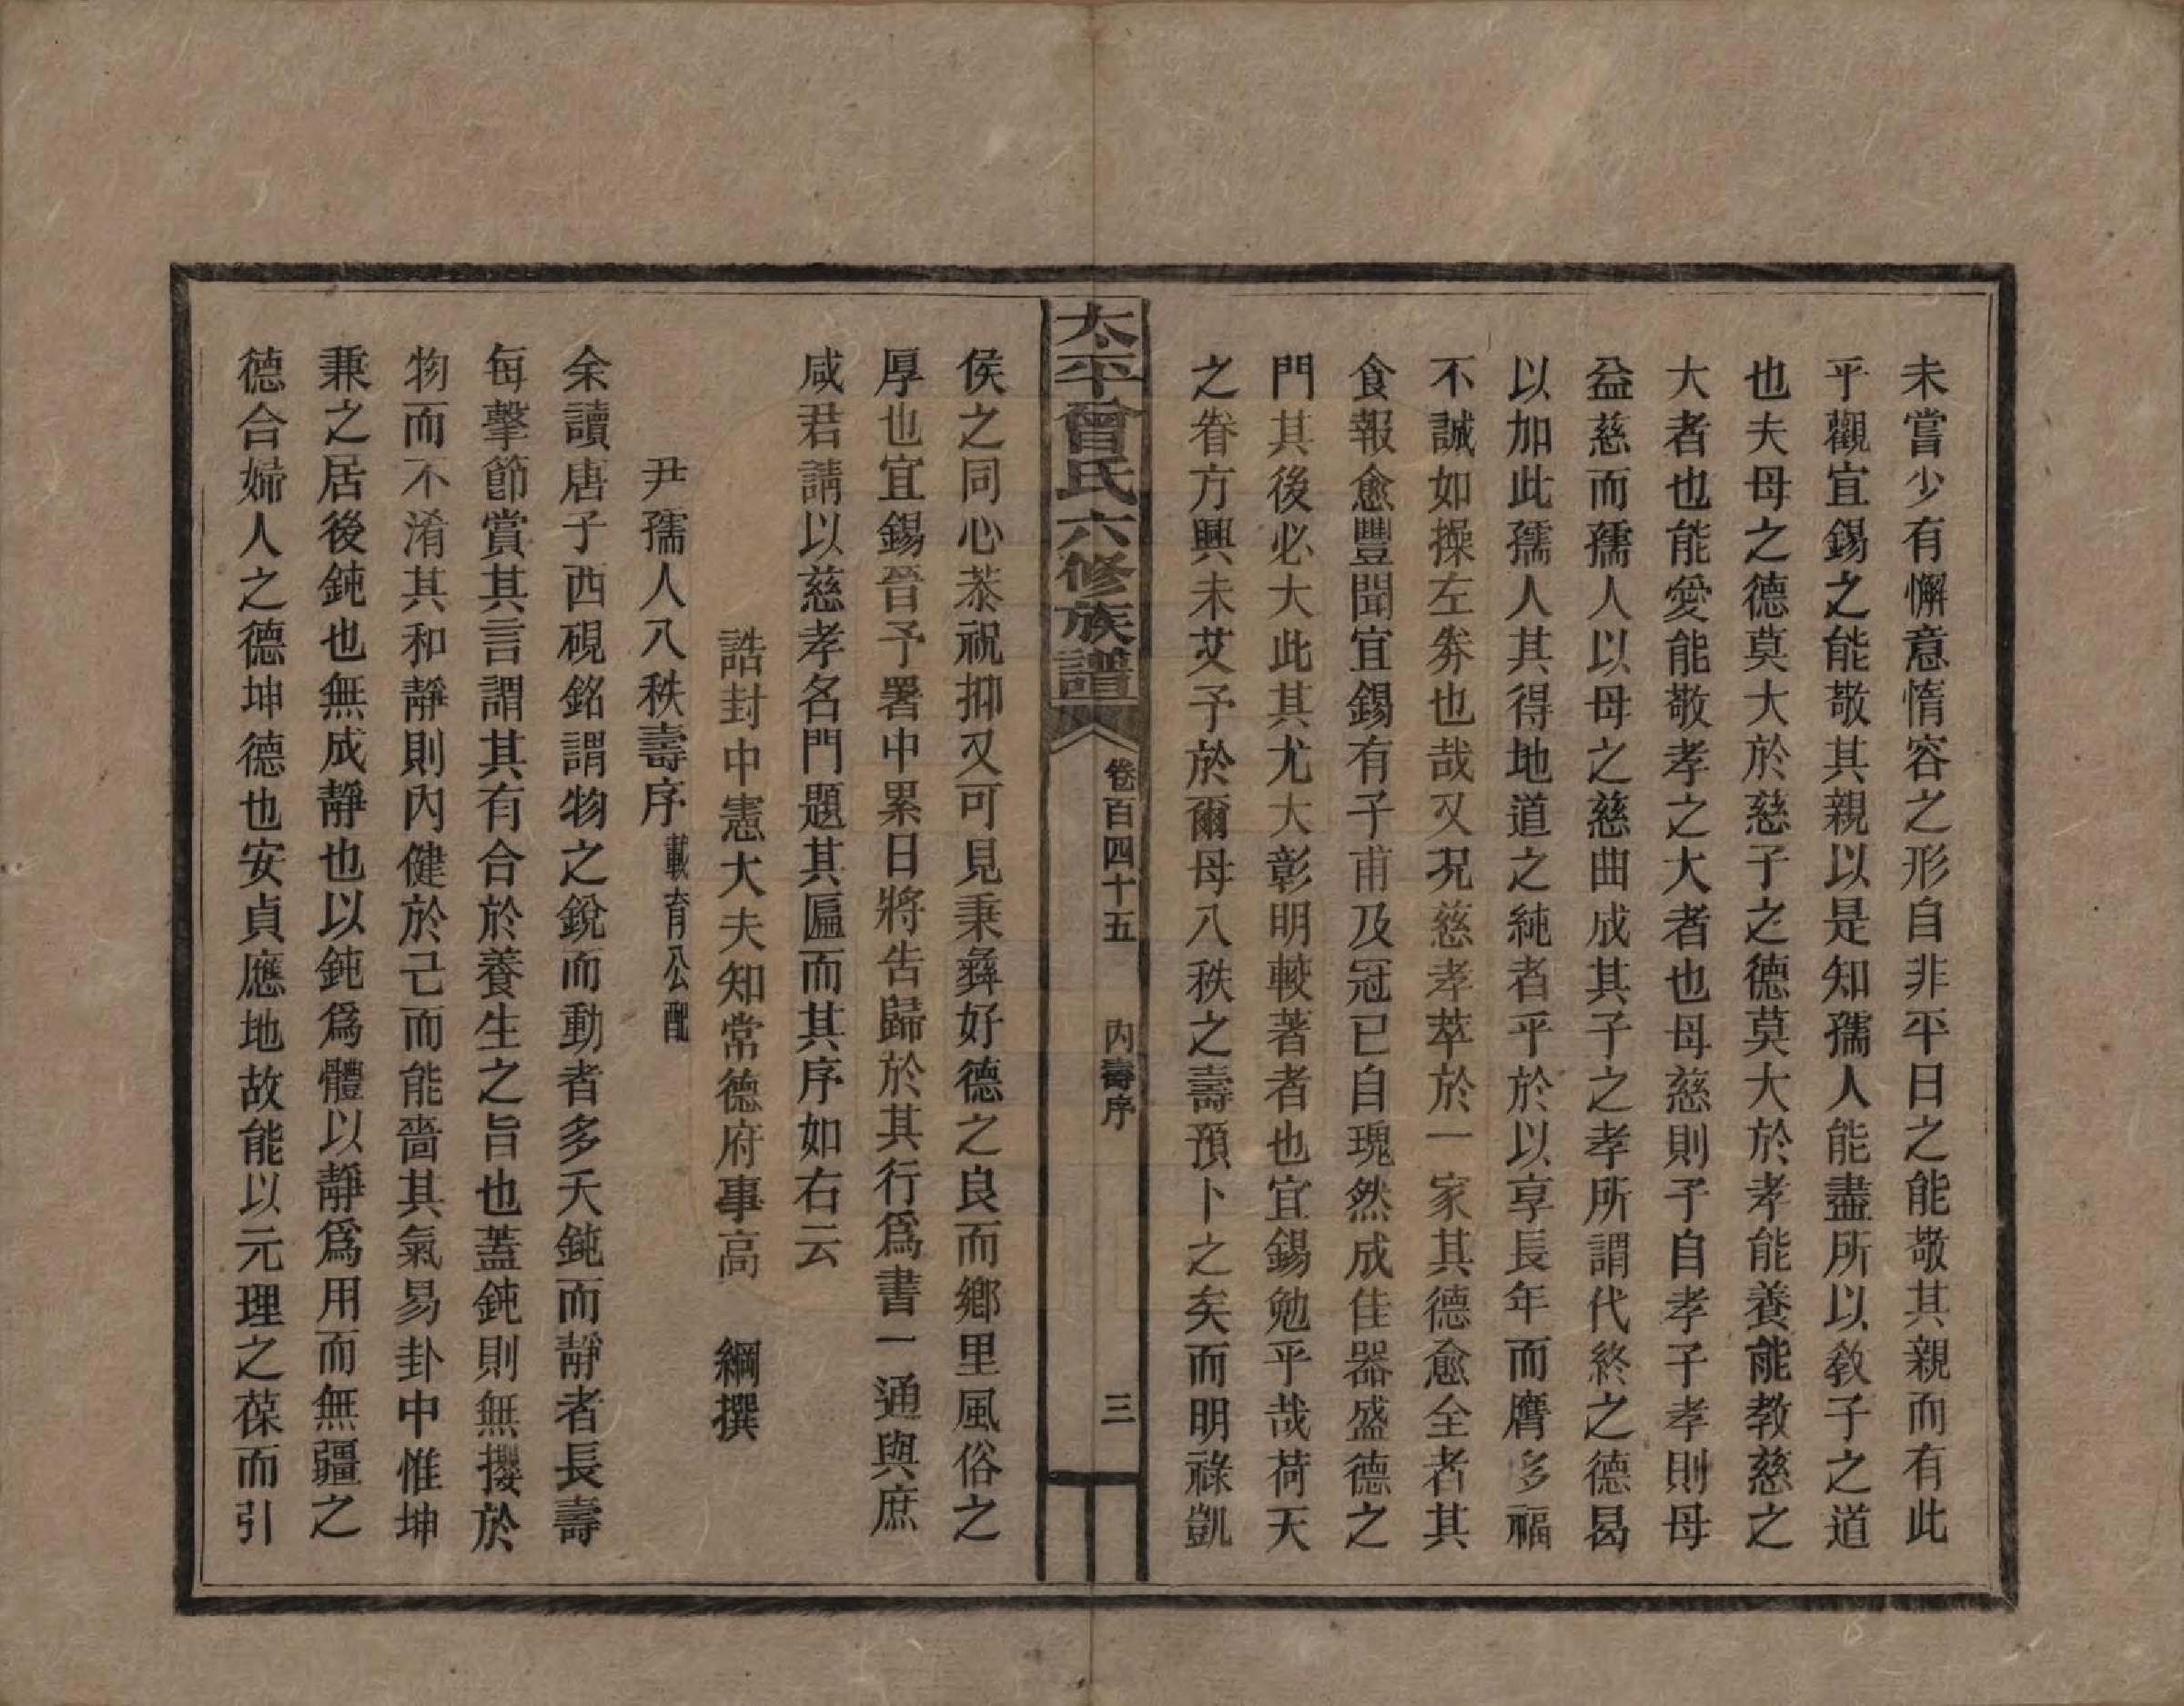 未嘗少有懈意惰容之形自非平日之能敬其親而有此
乎觀宜錫之能敬其親以是知孺人能盡所以敎子之道
也夫母之德莫大於慈子之德莫大於孝能養能教慈之
大者也能愛能敬孝之大者也母慈則子自孝子孝則母
益慈而孺人以母之慈曲成其子之孝所謂代終之德曷
以加此孺人其得地道之純者乎於以享長年而膺多福
不誠如操左劵也哉又况慈孝萃於一家其德愈全者其
食報愈豐聞宜錫有子甫及冠已自瑰然成佳器盛德之
門其後必大此其尤大彰明較著者也宜錫勉乎哉荷天
之眷方興未艾予於爾母八秩之壽預卜之矣而明祿凱
太平曾氏六修族譜
卷百四十五
內壽序
三
侯之同心恭祝抑又可見秉彝好德之良而鄉里風俗之
厚也宜錫晉予署中累日將告歸於其行爲書一通與庶
咸君請以慈孝名門題其匾而其序如右云
誥封中憲大夫知常德府事高 綱撰
尹孺人八秩壽序 載育公配
余讀唐子西硯銘謂物之銳而動者多夭鈍而靜者長壽
每擊節賞其言謂其有合於養生之旨也蓋鈍則無攖於
物而不淆其和靜則內健於己而能嗇其氣易卦中惟坤
兼之居後鈍也無成靜也以鈍爲體以靜爲用而無疆之
德合婦人之德坤德也安貞應地故能以元理之葆而引